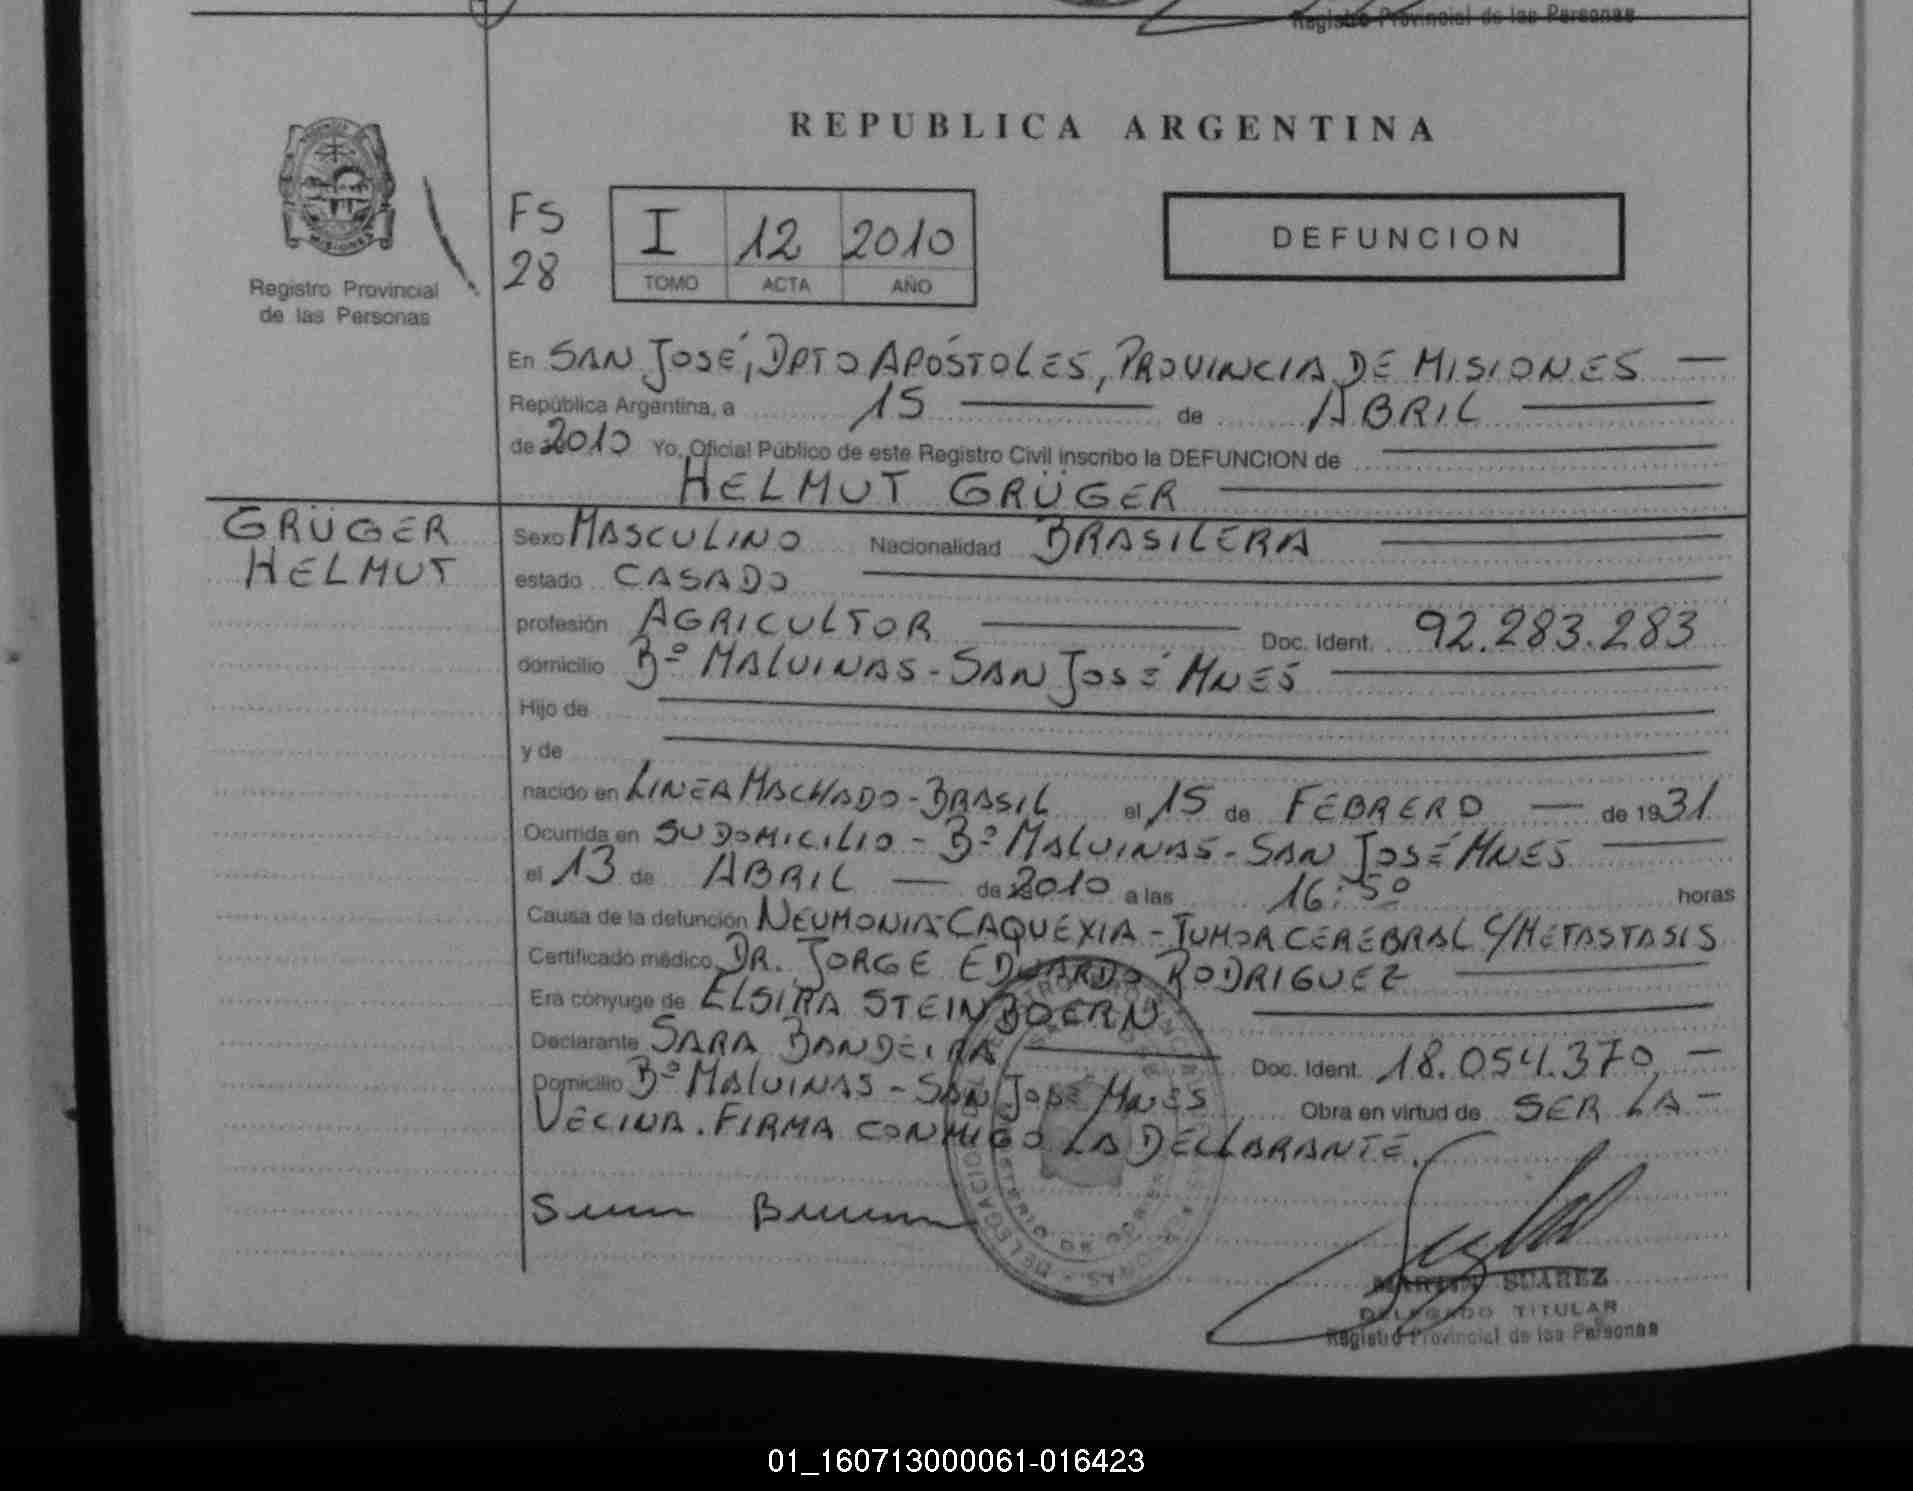 Registro Provincial de las Personas
REPUBLICA ARGENTINA
MISIONES
Registro Provincial
de las Personas
FS
28
I 12 2010
TOMO ACTA AÑO
DEFUNCION
En SAN JOSÉ, DPTO APÓSTOLES, PROVINCIA DE MISIONES —
República Argentina, a 15 — de ABRIL —
de 2010 Yo, Oficial Público de este Registro Civil inscribo la DEFUNCION de —
HELMUT GRÜGER —
GRÜGER
HELMUT
Sexo MASCULINO Nacionalidad BRASILERA —
estado CASADO —
profesión AGRICULTOR — Doc. Ident. 92.283.283
domicilio Bº MALVINAS - SAN JOSÉ MNES —
Hijo de —
y de —
nacido en LINEA MACHADO - BRASIL el 15 de FEBRERO — de 1931
Ocurrida en SU DOMICILIO - Bº MALVINAS - SAN JOSÉ MNES —
el 13 de ABRIL — de 2010 a las 16:50 horas
Causa de la defunción NEUMONIA-CAQUEXIA - TUMOR CEREBRAL C/METASTASIS
Certificado médico DR. JORGE EDUARDO RODRIGUEZ —
Era cónyuge de ELSIRA STEINBOERN —
Declarante SARA BANDEIRA — Doc. Ident. 18.054.370 —
Domicilio Bº MALVINAS - SAN JOSÉ MNES Obra en virtud de SER LA -
VECINA. FIRMA CONMIGO LA DECLARANTE.
SUAREZ
DELEGADO TITULAR
Registro Provincial de las Personas
01_160713000061-016423